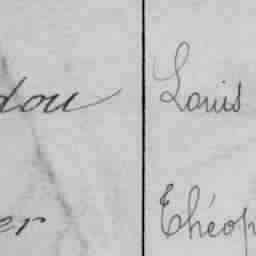 dou Louis
er Théop